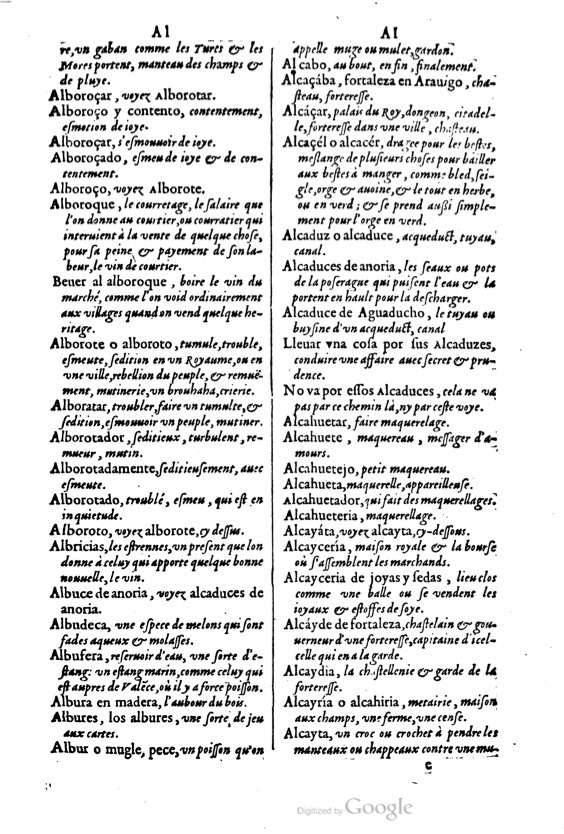 Al
re, vn gaban comme les Turcs & les
Mores portent, manteau des champs &
de pluye.
Alboroçar, voyez Alborotar.
Alboroço y contento, contentement,
esmotion de ioye.
Alboroçar, s'esmouuoir de ioye.
Alboroçado, esmeu de ioye & de con-
tentement.
Alboroço, voyez Alborote.
Alboroque, le courretage, le salaire que
l'on donne au courtier, ou courratier qui
interuient à la vente de quelque chose,
pour sa peine & payement de son la-
beur, le vin de courtier.
Beuer al alboroque, boire le vin du
marché, comme l'on void ordinairement
aux villages quand on vend quelque he-
ritage.
Alborote o alboroto, tumule, trouble,
esmeute, sedition en vn Royaume, ou en
vne ville, rebellion du peuple, & remuë-
ment, mutinerie, vn brouhaha, crierie.
Alboratar, troubler, faire vn tumulte, &
sedition, esmouuoir vn peuple, mutiner.
Alborotador, seditieux, turbulent, re-
mueur, mutin.
Alborotadamente, seditieusement, auec
esmeute.
Alborotado, troublé, esmeu, qui est en
inquietude.
Alboroto, voyez alborote, cy dessus.
Albricias, les estrennes, vn present que lon
donne à celuy qui apporte quelque bonne
nouuelle, le vin.
Albuce de anoria, voyez alcaduces de
anoria.
Albudeca, vne espece de melons qui sont
fades aqueux & molasses.
Albufera, reseruoir d'eau, vne sorte d'e-
stang: vn estang marin, comme celuy qui
est aupres de Valēce, où il y a force poisson.
Albura en madera, l'aubour du bois.
Albures, los albures, vne sorte de jeu
aux cartes.
Albur o mugle, pece, vn poisson qu'on
Al
appelle muge ou mulet, gardon.
Al cabo, au bout, en fin, finalement.
Alcaçába, fortaleza en Arauigo, cha-
steau, forteresse.
Alcáçar, palais du Roy, dongeon, citadel-
le, forteresse dans une ville, chasteau.
Alcaçél o alcacér, dragee pour les bestes,
meslange de plusieurs choses pour bailler
aux bestes à manger, comme bled, sei-
gle, orge & auoine, & le tout en herbe,
ou en verd; & se prend aussi simple-
ment pour l'orge en verd.
Alcaduz o alcaduce, acqueduct, tuyau,
canal.
Alcaduces de anoria, les seaux ou pots
de la poserague qui puisent l'eau & la
portent en hault pour la descharger.
Alcaduce de Aguaducho, le tuyau ou
buysine d'vn acqueduct, canal
Lleuar vna cosa por sus Alcaduzes,
conduire vne affaire auec secret & pru-
dence.
No va por essos Alcaduces, cela ne va
pas par ce chemin là, ny par ceste voye.
Alcahuetar, faire maquerelage.
Alcahuete, maquereau, messager d'a-
mours.
Alcahuetejo, petit maquereau.
Alcahueta, maquerelle, appareilleuse.
Alcahuetador, qui fait des maquerellages.
Alcahueteria, maquerellage.
Alcayáta, voyez alcayta, cy-dessous.
Alcaycería, maison royale & la bourse
où s'assemblent les marchands.
Alcayceria de joyas y sedas, lieu clos
comme vne balle ou se vendent les
ioyaux & estoffes de soye.
Alcáyde de fortaleza, chastelain & gou-
uerneur d'vne forteresse, capitaine d'icel-
celle qui en a la garde.
Alcaydia, la chastellenie & garde de la
forteresse.
Alcayría o alcahiria, metairie, maison
aux champs, vne ferme, vne cense.
Alcayta, vn croc ou crochet à pendre les
manteaux ou chappeaux contre vne mu-
C
Digitized by Google